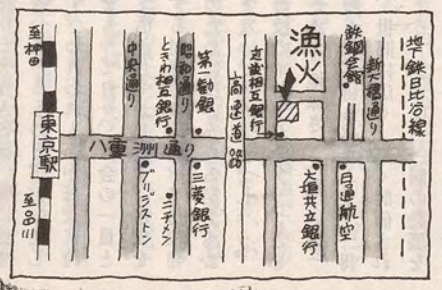 至神田
東京駅
至品川
中央通り
ときわ相互銀行
昭和通り
第一勧銀
高速道路
近畿相互銀行
漁火
鉄鋼会館
新大橋通り
地下鉄日比谷線
八重洲通り
ブリジストン
ニチメン
三菱銀行
大垣共立銀行
日通航空